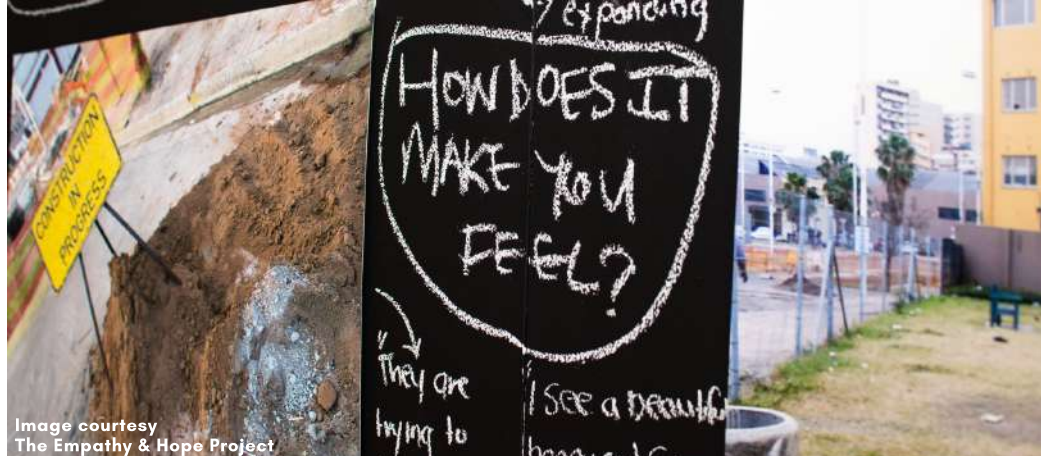 CONSTRUCTION
IN
PROGRESS
expanding
HOW DOES IT
MAKE YOU
FEEL?
"They are
trying to
I see a beautiful
Image courtesy
The Empathy & Hope Project